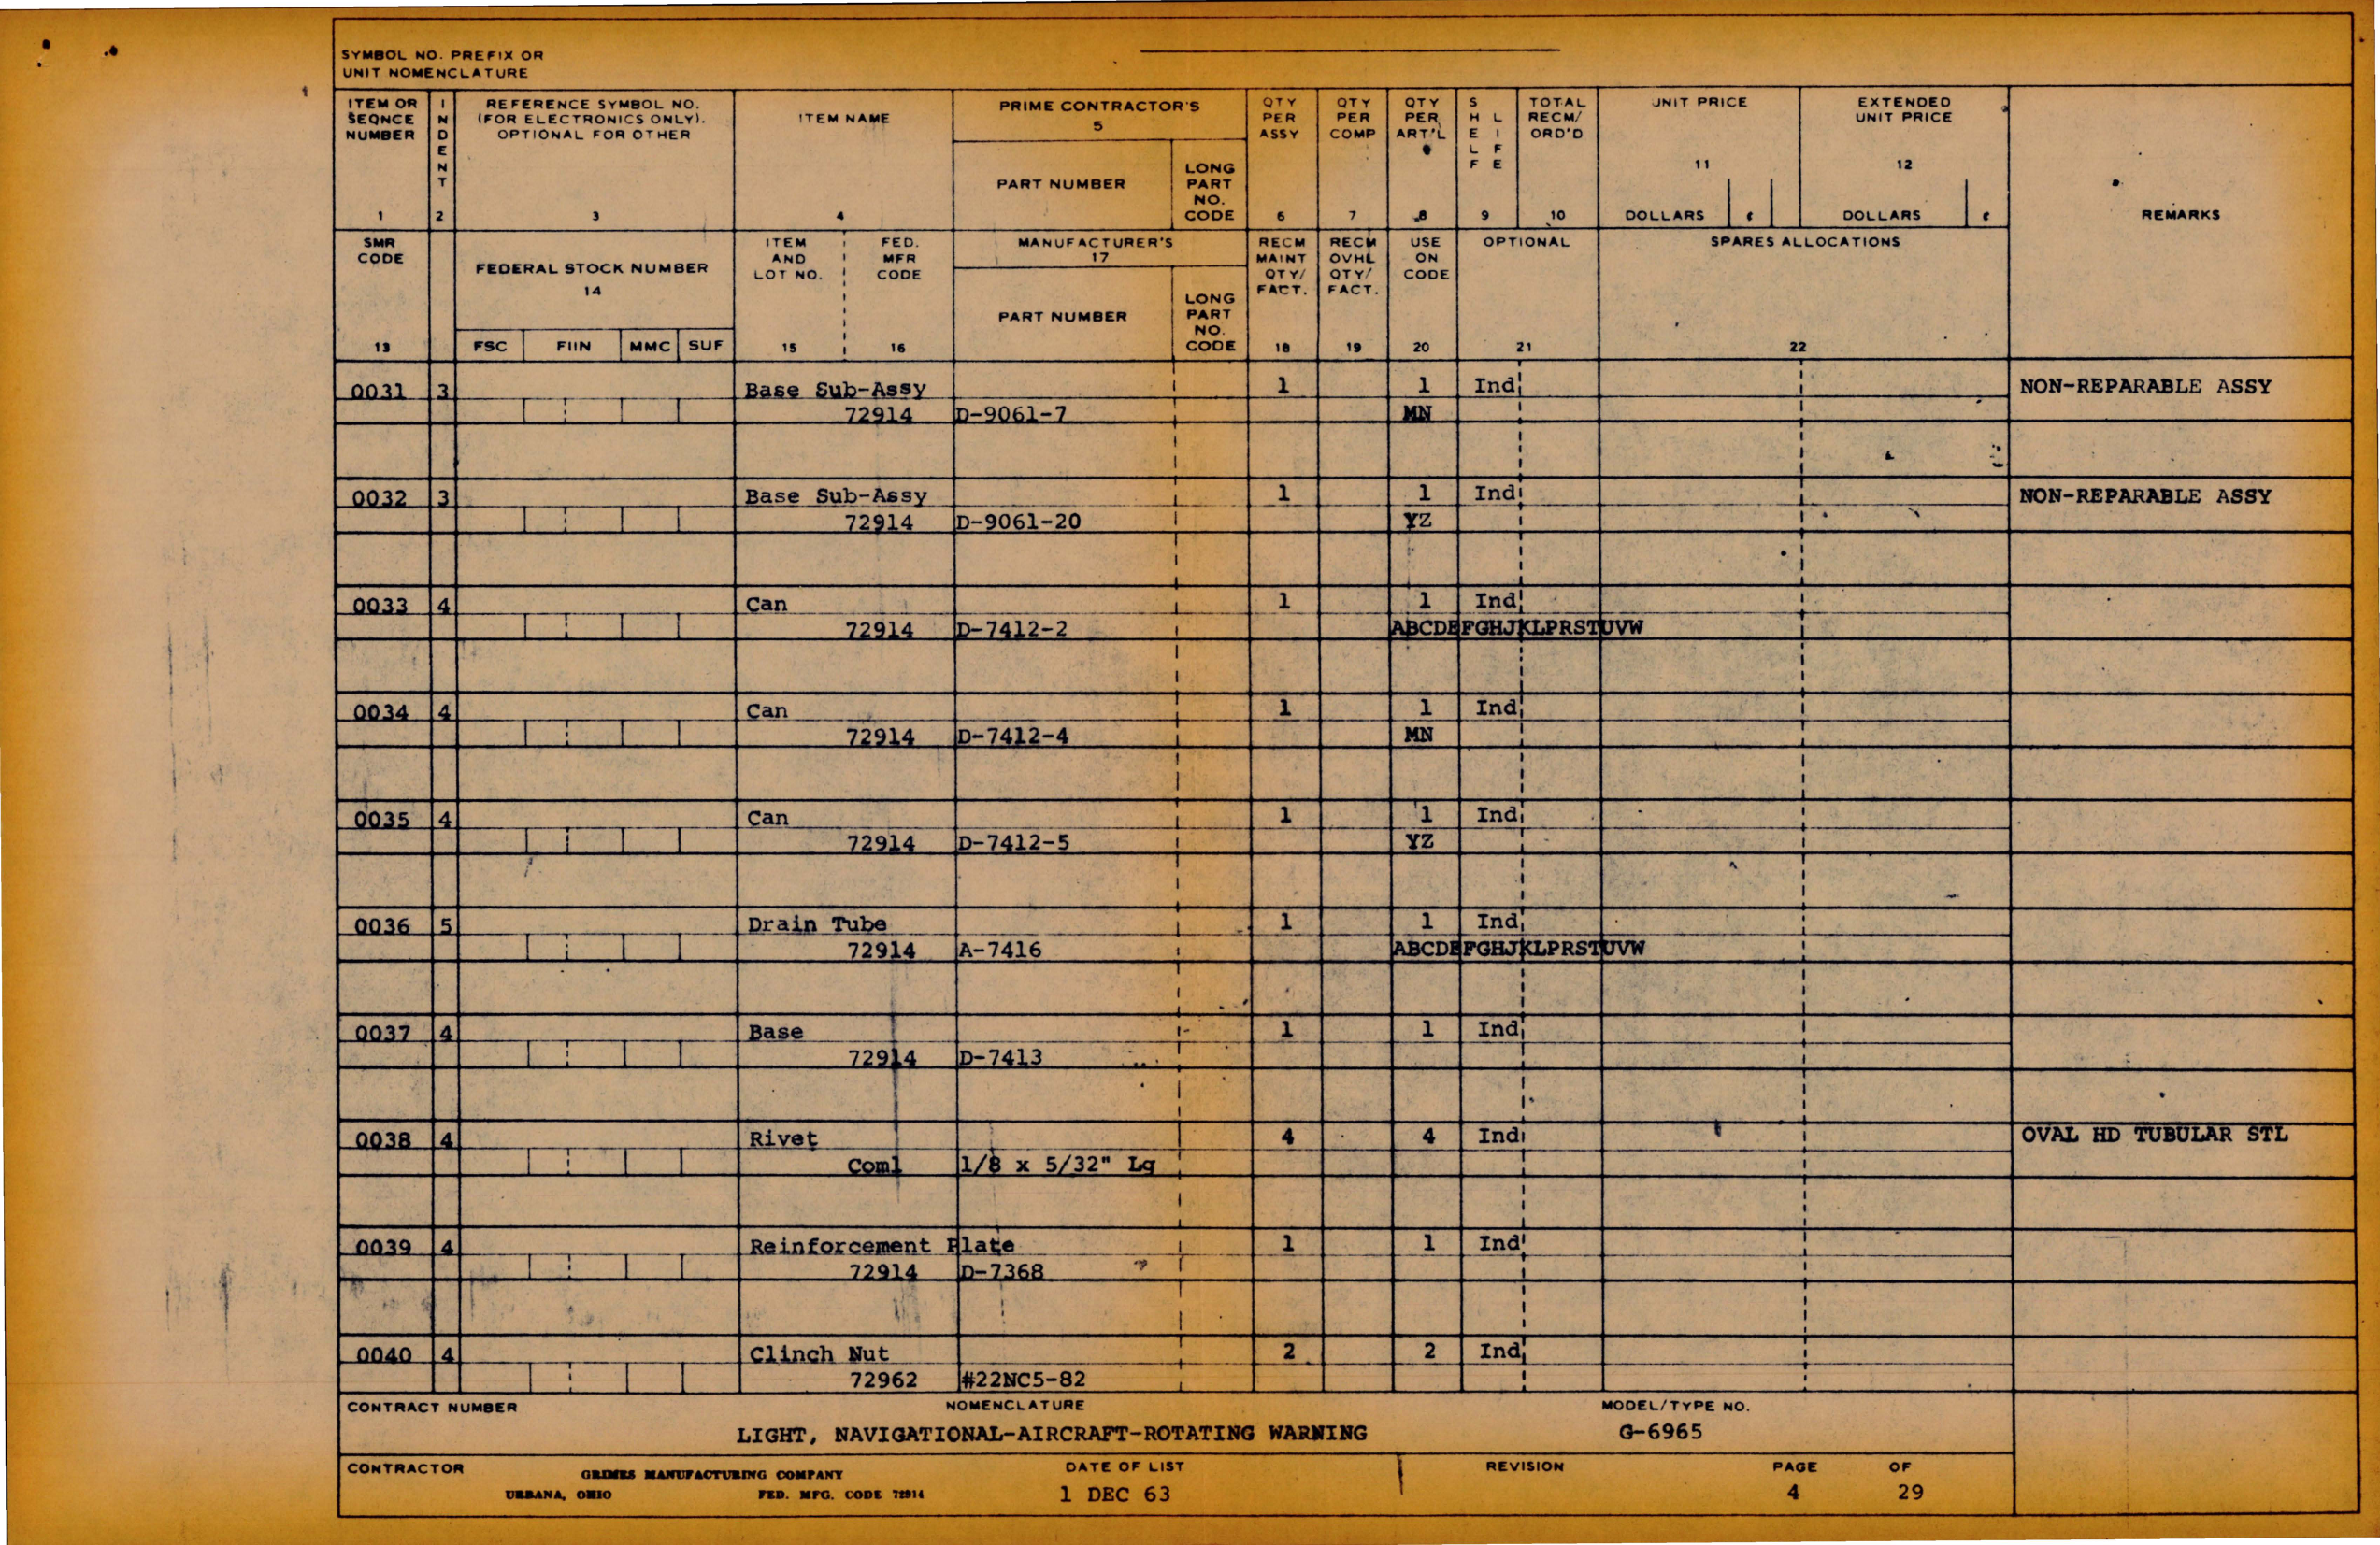 SYMBOL NO. PREFIX OR
UNIT NOMENCLATURE
ITEM OR SEQNCE NUMBER 1
INDENT 2
REFERENCE SYMBOL NO. (FOR ELECTRONICS ONLY). OPTIONAL FOR OTHER 3
ITEM NAME 4
PRIME CONTRACTOR'S 5
PART NUMBER
LONG PART NO. CODE
QTY PER ASSY 6
QTY PER COMP 7
QTY PER ART'L 8
SHELF LIFE 9
TOTAL RECM/ ORD'D 10
UNIT PRICE 11
DOLLARS ¢
EXTENDED UNIT PRICE 12
DOLLARS ¢
REMARKS
SMR CODE 13
FEDERAL STOCK NUMBER 14
FSC FIIN MMC SUF
ITEM AND LOT NO. 15
FED. MFR CODE 16
MANUFACTURER'S 17
PART NUMBER
LONG PART NO. CODE
RECM MAINT QTY/ FACT. 18
RECM OVHL QTY/ FACT. 19
USE ON CODE 20
OPTIONAL 21
SPARES ALLOCATIONS 22
0031 3 Base Sub-Assy 1 1 Ind NON-REPARABLE ASSY
72914 D-9061-7 MN
0032 3 Base Sub-Assy 1 1 Ind NON-REPARABLE ASSY
72914 D-9061-20 YZ
0033 4 Can 1 1 Ind
72914 D-7412-2 ABCDEFGHJKLPRSTUVW
0034 4 Can 1 1 Ind
72914 D-7412-4 MN
0035 4 Can 1 1 Ind
72914 D-7412-5 YZ
0036 5 Drain Tube 1 1 Ind
72914 A-7416 ABCDEFGHJKLPRSTUVW
0037 4 Base 1 1 Ind
72914 D-7413
0038 4 Rivet 4 4 Ind OVAL HD TUBULAR STL
Coml 1/8 x 5/32" Lg
0039 4 Reinforcement Plate 1 1 Ind
72914 D-7368
0040 4 Clinch Nut 2 2 Ind
72962 #22NC5-82
CONTRACT NUMBER NOMENCLATURE MODEL/TYPE NO.
LIGHT, NAVIGATIONAL-AIRCRAFT-ROTATING WARNING G-6965
CONTRACTOR GRIMES MANUFACTURING COMPANY DATE OF LIST REVISION PAGE OF
URBANA, OHIO FED. MFG. CODE 72914 1 DEC 63 4 29